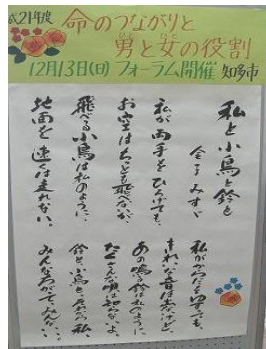 成21年度
命のつながりと
男と女の役割
ひと ひと
12月13日(日) フォーラム開催 知多市
私と小鳥と鈴と
金子みすゞ
私が両手をひろげても、
お空はちっとも飛べないが、
飛べる小鳥は私のように、
地面を速くは走れない。
私がからだをゆすっても、
きれいな音は出ないけど、
あの鳴る鈴は私のように
たくさんな唄は知らないよ。
鈴と、小鳥と、それから私、
みんなちがって、みんないい。